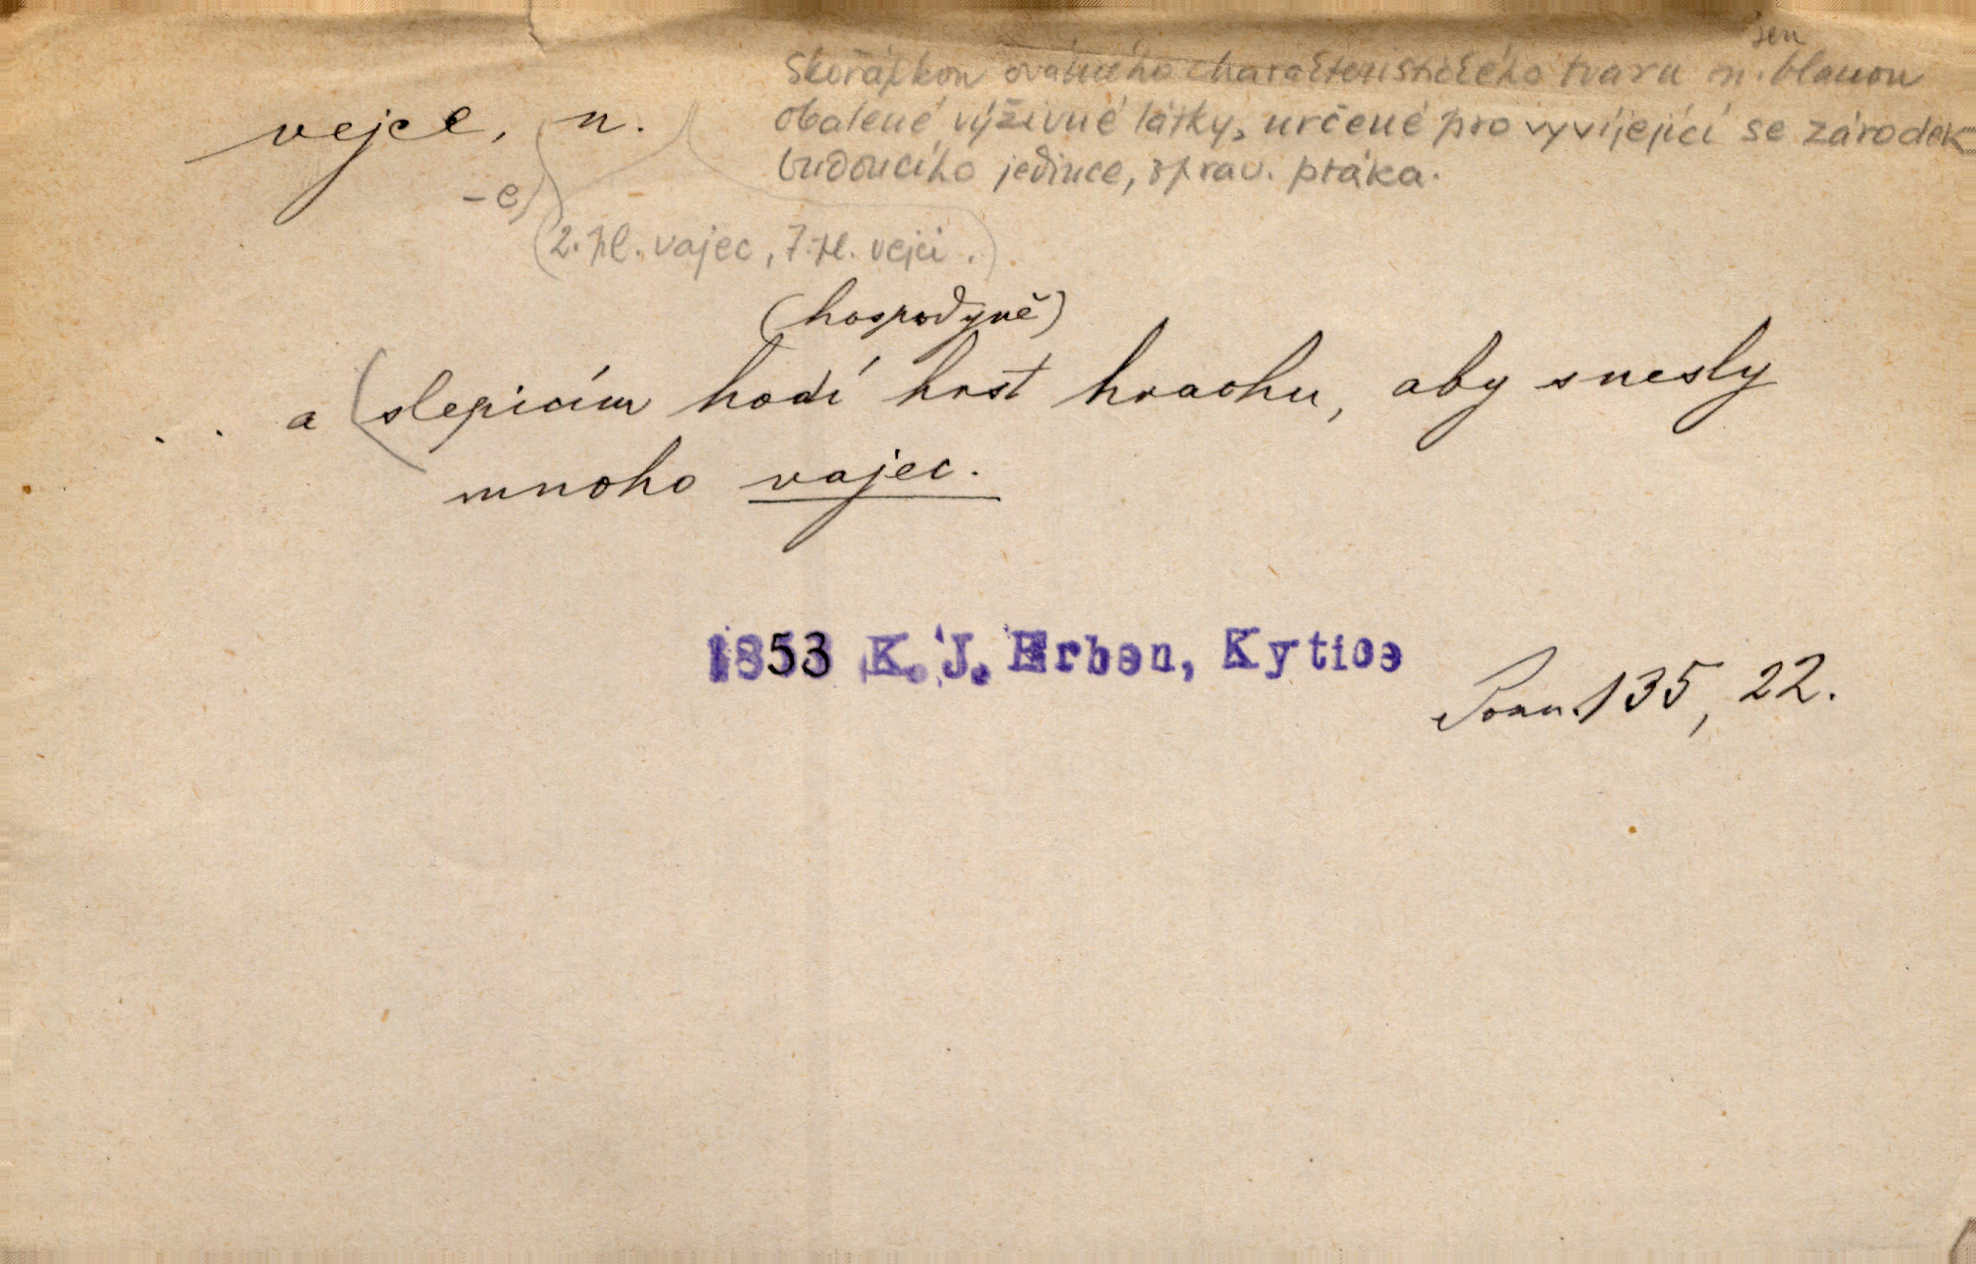 jen
skořápkou oválného charakteristického tvaru n. blanou
vejce, n. obalené výživné látky, určené pro vyvíjející se zárodek
budoucího jedince, zprav. ptáka.
-e,
(2. pl. vajec, 7. pl. vejci.)
(hospodyně)
. . a (slepicím hodí hrst hrachu, aby snesly
mnoho vajec.
1853 K. J. Erben, Kytice
Pozn. 135, 22.